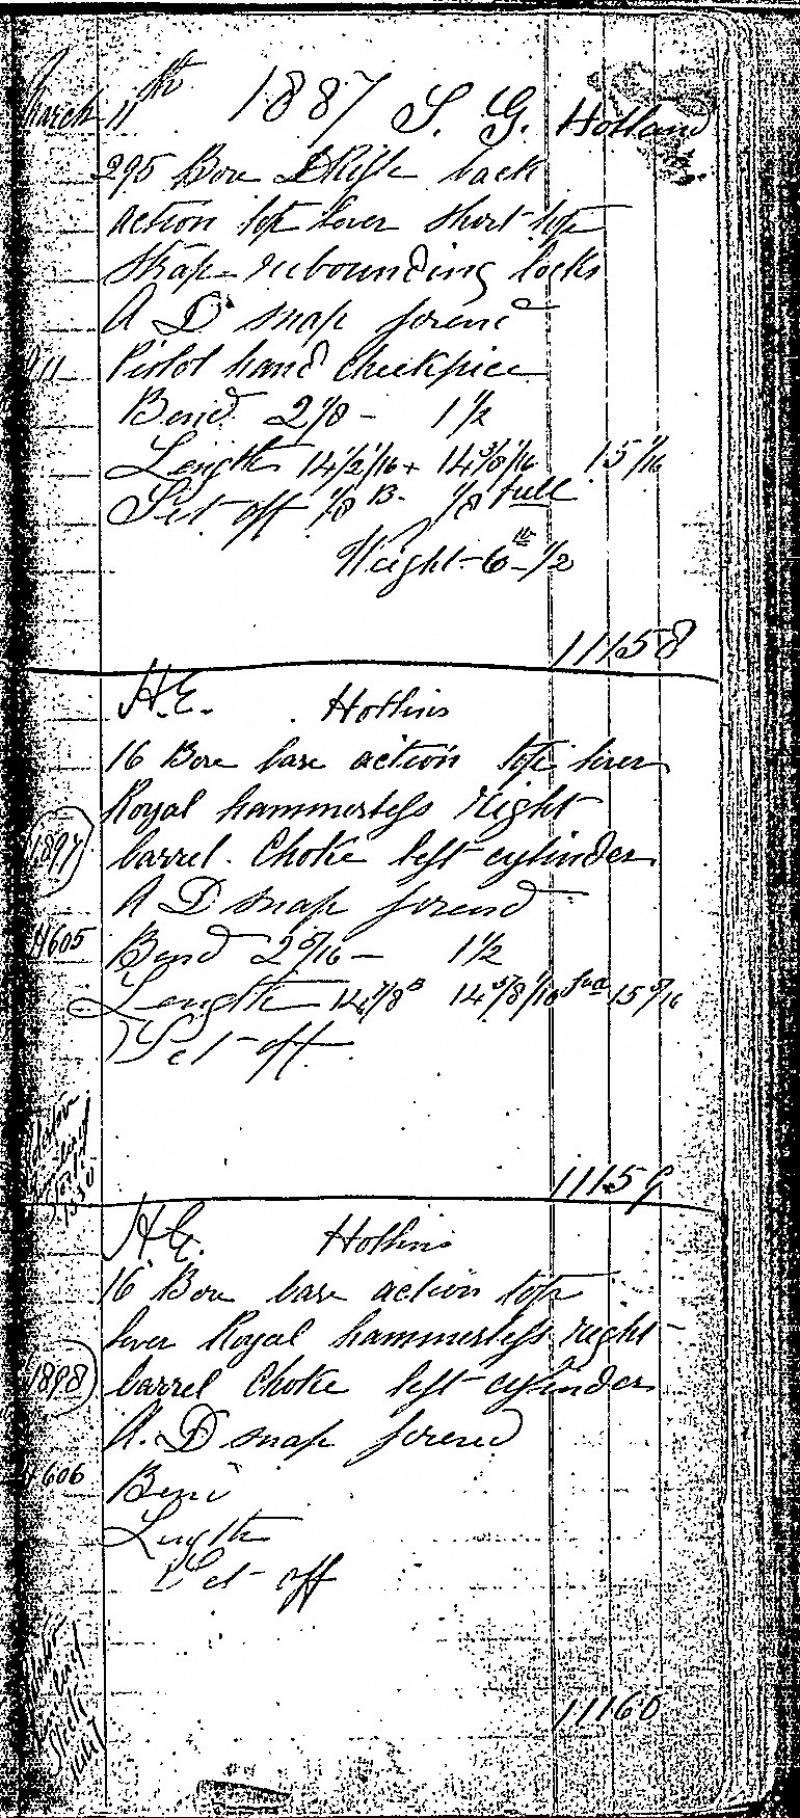 March 11th 1887 S. G. Holland
295 Bore D Rifle back
action top lever short top
strap rebounding locks
A D snap forend
Pistol hand cheekpiece
Bend 2 1/8 - 1 1/2
Length 14 1/2 1/16 + 14 3/8 1/16 15 1/16
Set off 1/8 B. 1/8 full
Weight 6 lb 1/2
11158
H.E. Hollins
16 Bore barr action top lever
Royal hammerless right
barrel Choke left cylinder
A D snap forend
4605
Bend 2 5/16 - 1 1/2
Length 14 7/8 B 14 5/8 1/16 15 5/16
Set off
11159
H.E. Hollins
16 Bore barr action top
lever Royal hammerless right
1898
barrel Choke left cylinder
A. D snap forend
4606
Bend
Length
Set off
11160